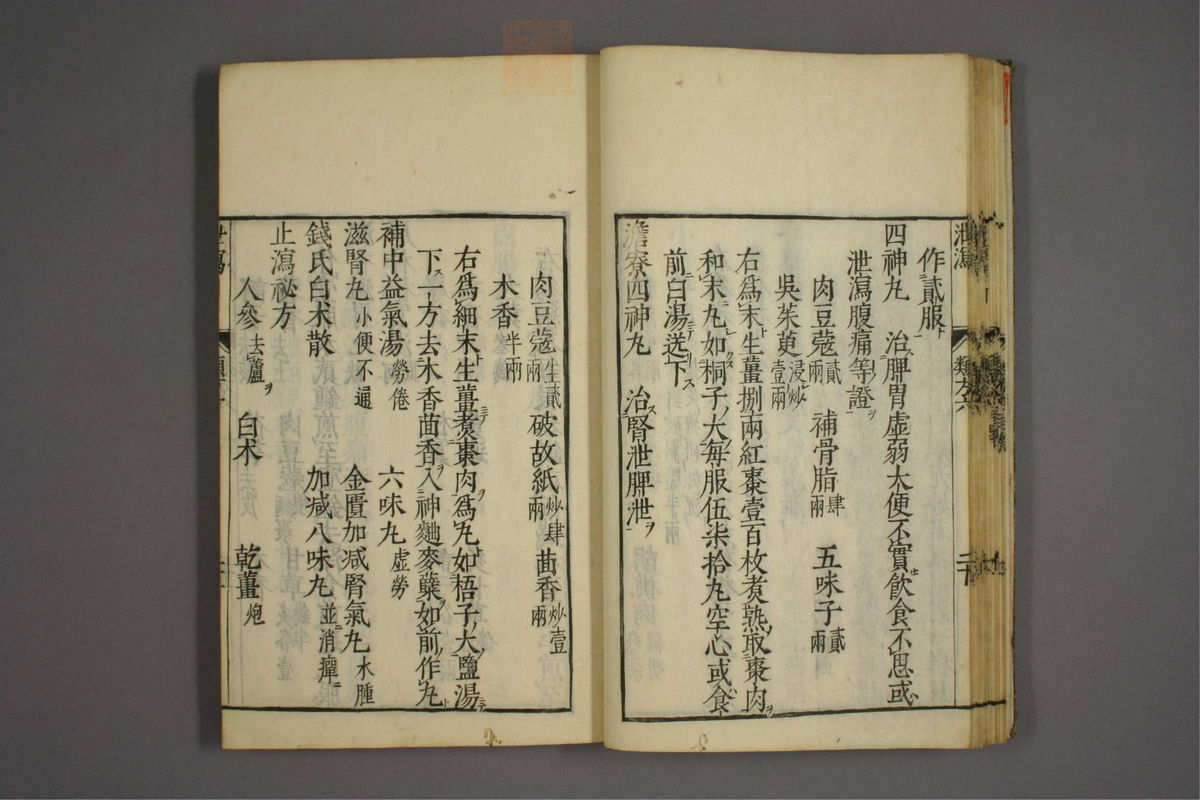 泄瀉
類九六
二十
作貳服ト
四神丸 治脾胃虛弱大便不實飲食不思或
泄瀉腹痛等證
肉豆蔻貳兩 補骨脂肆兩 五味子貳兩
吳茱萸浸炒壹兩
右爲末生薑捌兩紅棗壹百枚煮熟取棗肉
和末丸如桐子大每服伍柒拾丸空心或食
前白湯送下
澹寮四神丸 治腎泄脾泄
肉豆蔻生貳兩 破故紙炒肆兩 茴香炒壹兩
木香半兩
右爲細末生薑煮棗肉爲丸如梧子大鹽湯
下一方去木香茴香入神麯麥蘗如前作丸
補中益氣湯勞倦 六味丸虛勞
滋腎丸小便不通 金匱加減腎氣丸水腫
錢氏白朮散 加減八味丸並消癉
止瀉祕方
人參去蘆 白朮 乾薑炮